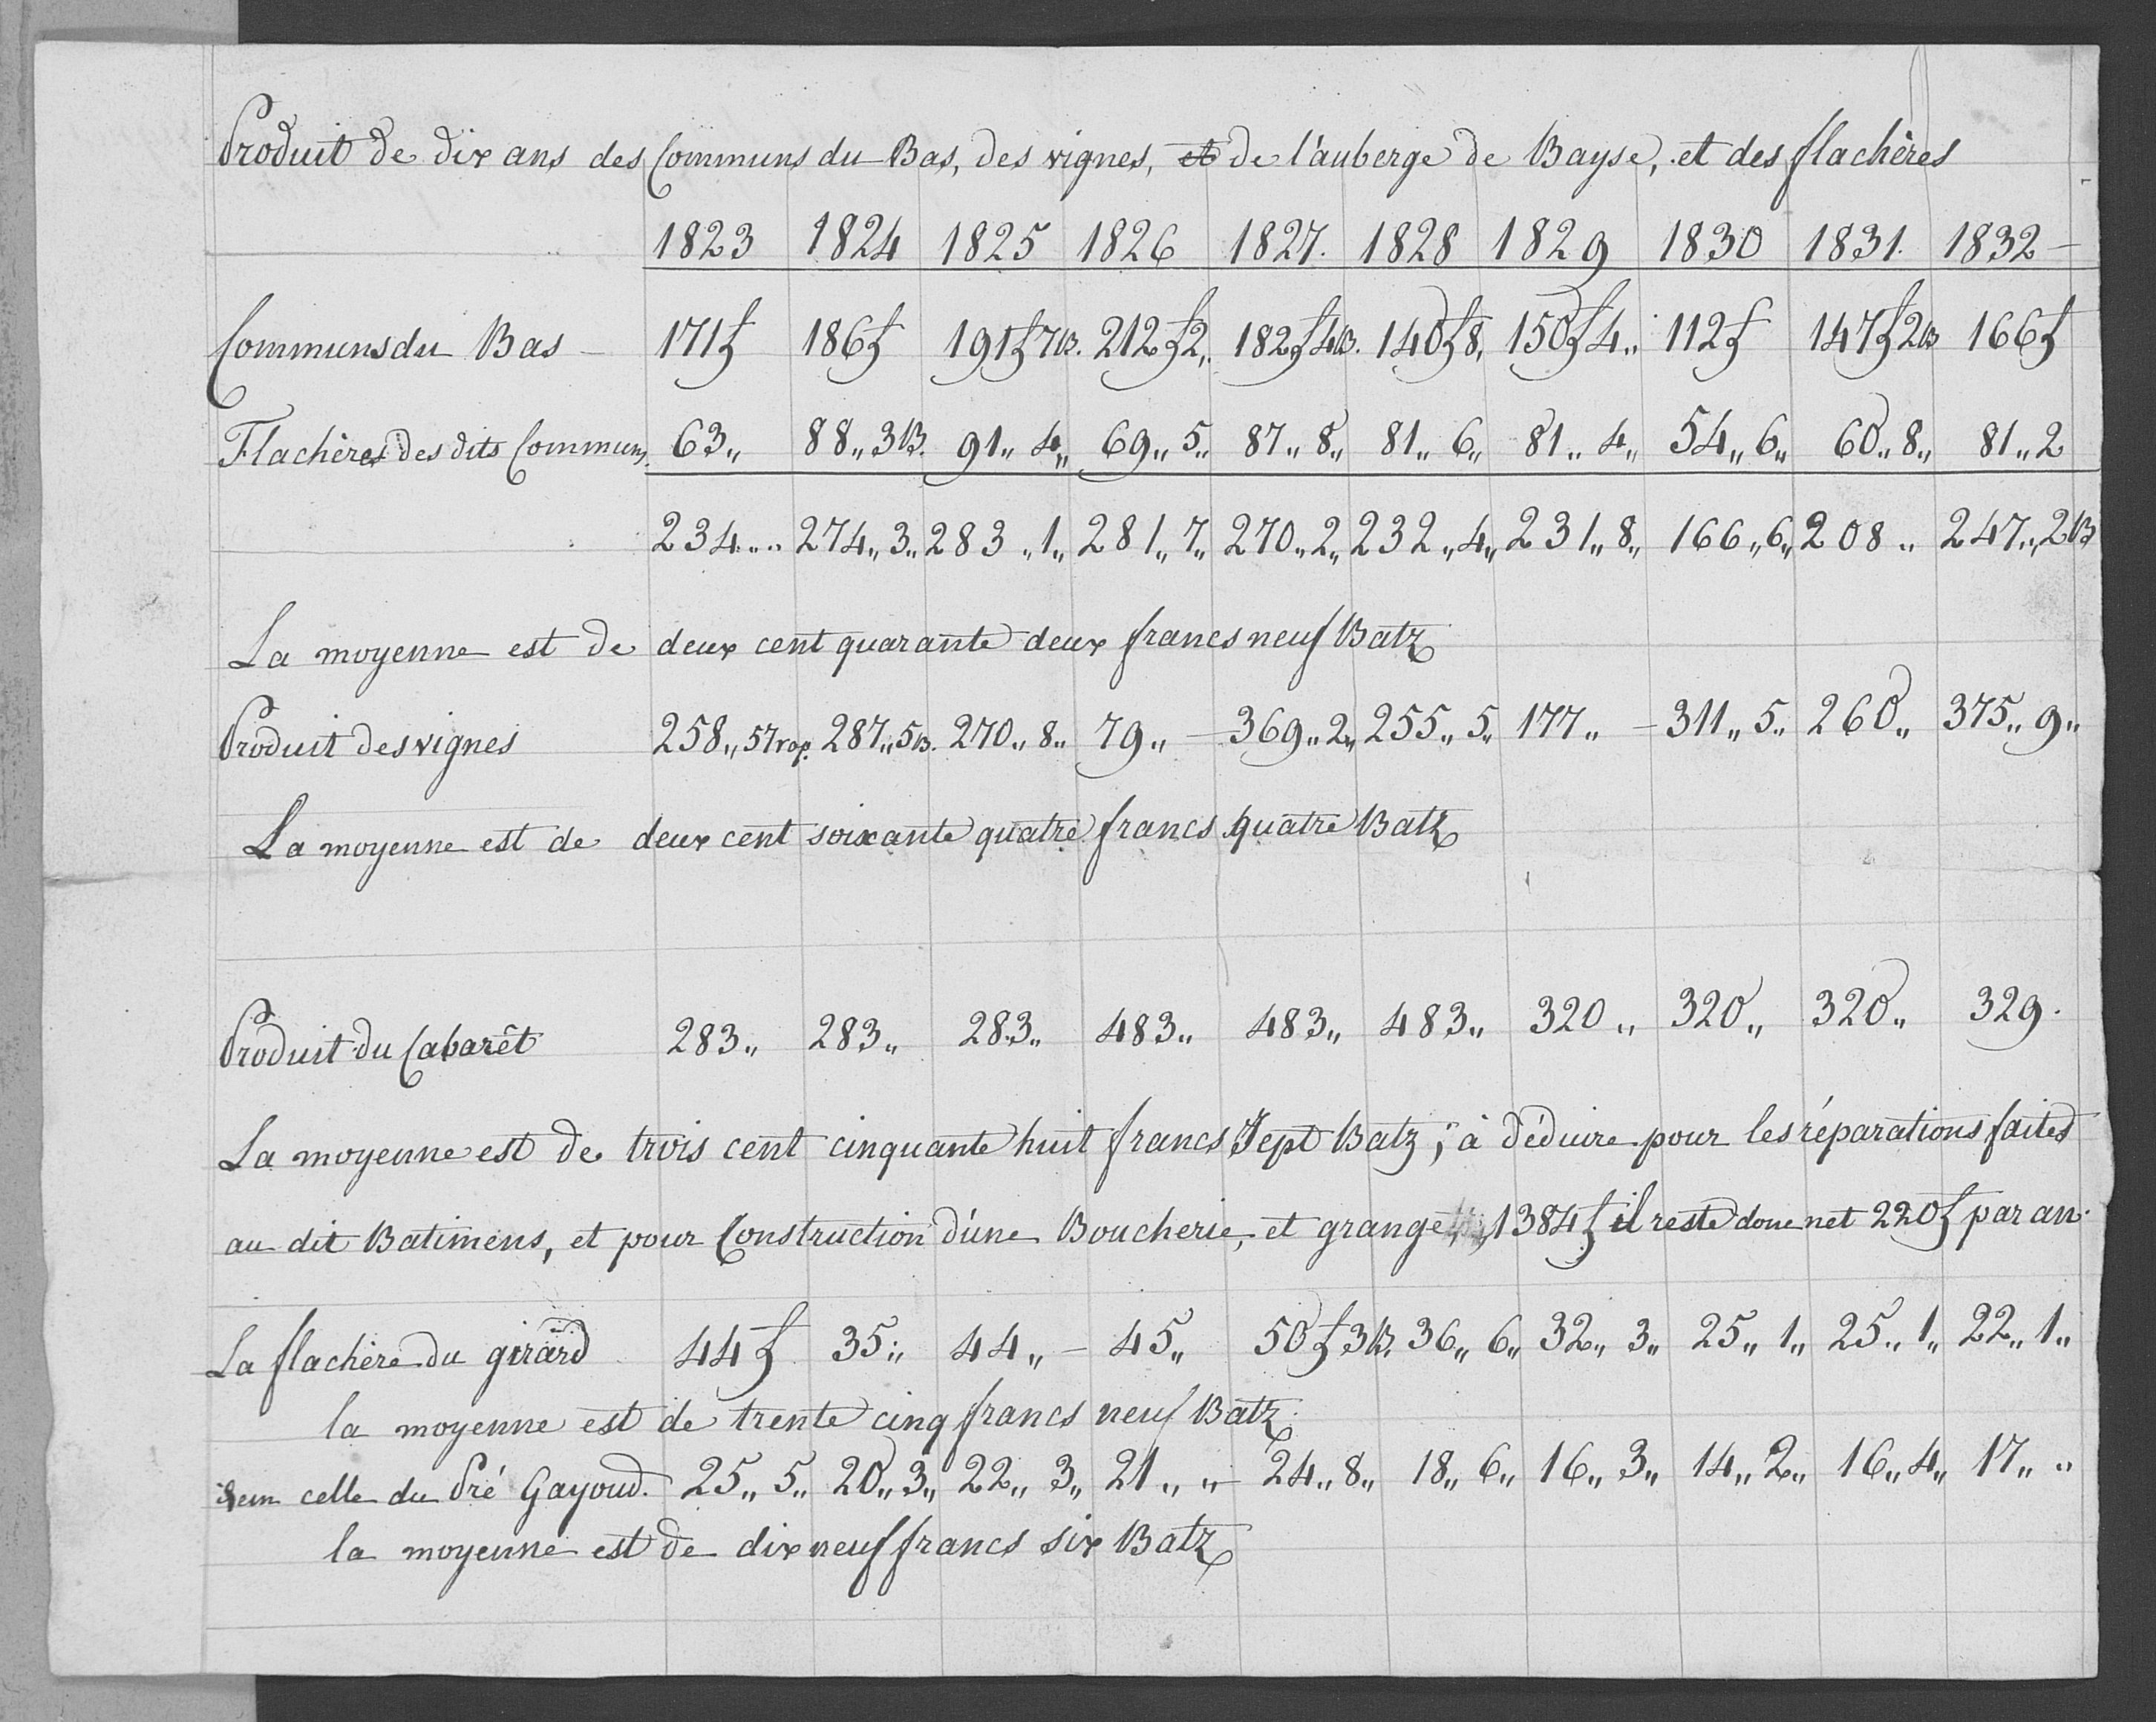 Produit de dix ans des Communs du Bas, des vignes, et de l'auberge de Bayse, et des flachères
1823 1824 1825 1826 1827. 1828 1829 1830 1831. 1832 —
Communs du Bas — 171f 186f 191f7B. 212f2„ 182f4B. 140f8„ 150f4„ 112f 147f2B 166f
Flachères des dits Communs. 63„ 88„3B. 91„4„ 69„5„ 87„8„ 81„6„ 81„4„ 54„6„ 60„8„ 81„2
234„„ 274„3„ 283„1„ 281„7„ 270„2„ 232„4„ 231„8„ 166„6„ 208„ 247„2B
La moyenne est de deux cent quarante deux francs neuf Batz
Produit des vignes 258„57rap. 287„5B. 270„8„ 79„ — 369„2„ 255„5„ 177„ — 311„5„ 260„ 375„9„
La moyenne est de deux cent soixante quatre francs quatre Batz
Produit du Cabarêt 283„ 283„ 283„ 483„ 483„ 483„ 320„ 320„ 320„ 329.
La moyenne est de trois cent cinquante huit francs Sept Batz; à déduire pour les réparations faites
au dit Batimens, et pour Construction d'une Boucherie, et grange 1384f il reste donc net 220f par an.
La flachère du girard 44f 35„ 44„ — 45„ 50f3B. 36„6„ 32„3„ 25„1„ 25„1„ 22„1„
la moyenne est de trente cinq francs neuf Batz
celle du Pré Gayoud. 25„5„ 20„3„ 22„3„ 21„„ — 24„8„ 18„6„ 16„3„ 14„2„ 16„4„ 17„„
la moyenne est de dix neuf francs six Batz